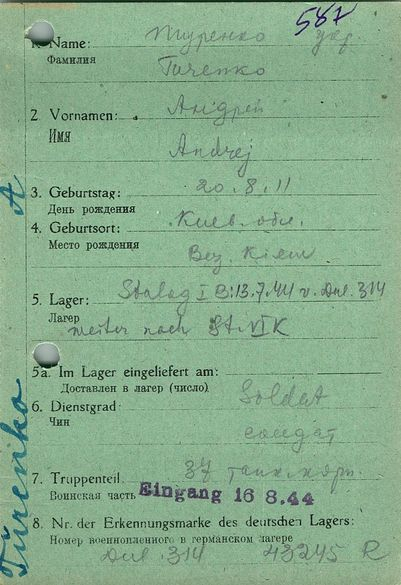 587
1. Name: Тиуренко укр
Фамилия
Tičenko
2. Vornamen: Андрей
Имя
Andrej
3. Geburtstag: 20.8.11
День рождения
4. Geburtsort: Киев. обл.
Место рождения
Bez. Kiew
5. Lager: Stalag I B: 13.7.44 v. Dul. 314
Лагер
weiter nach St. VI K
5a. Im Lager eingeliefert am:
Доставлен в лагер (число)
6. Dienstgrad Soldat
Чин
солдат
7. Truppenteil 37 танк.
Воинская часть Eingang 16 8.44
8. Nr. der Erkennungsmarke des deutschen Lagers:
Номер военнопленного в германском лагере
Dul. 314 43245 R
Türenko A